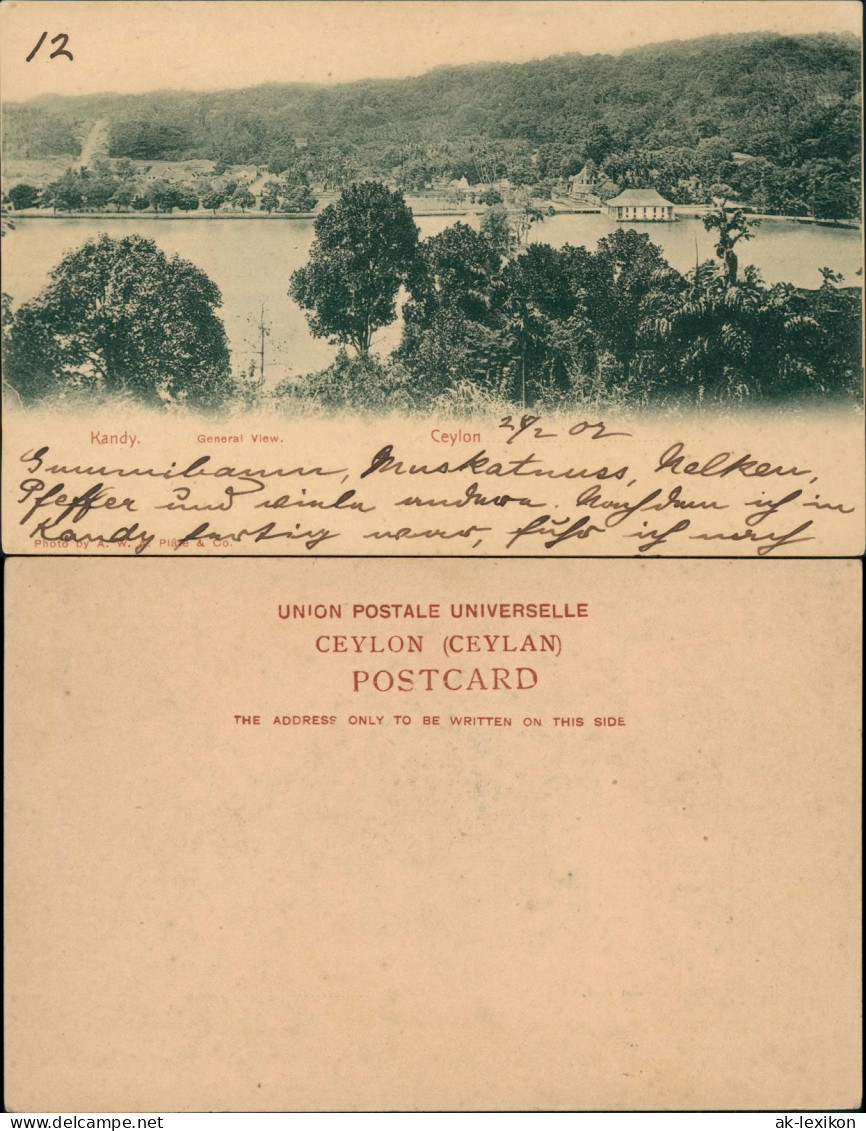 12
Kandy. General View. Ceylon 24/2 02
Gummibaum, Muskatnuss, Nelken,
Pfeffer und viele andere. Nachdem ich in
Kandy fertig war, fuhr ich nach
Photo by A. W. A. Plâté & Co.
UNION POSTALE UNIVERSELLE
CEYLON (CEYLAN)
POSTCARD
THE ADDRESS ONLY TO BE WRITTEN ON THIS SIDE
ak-lexikon